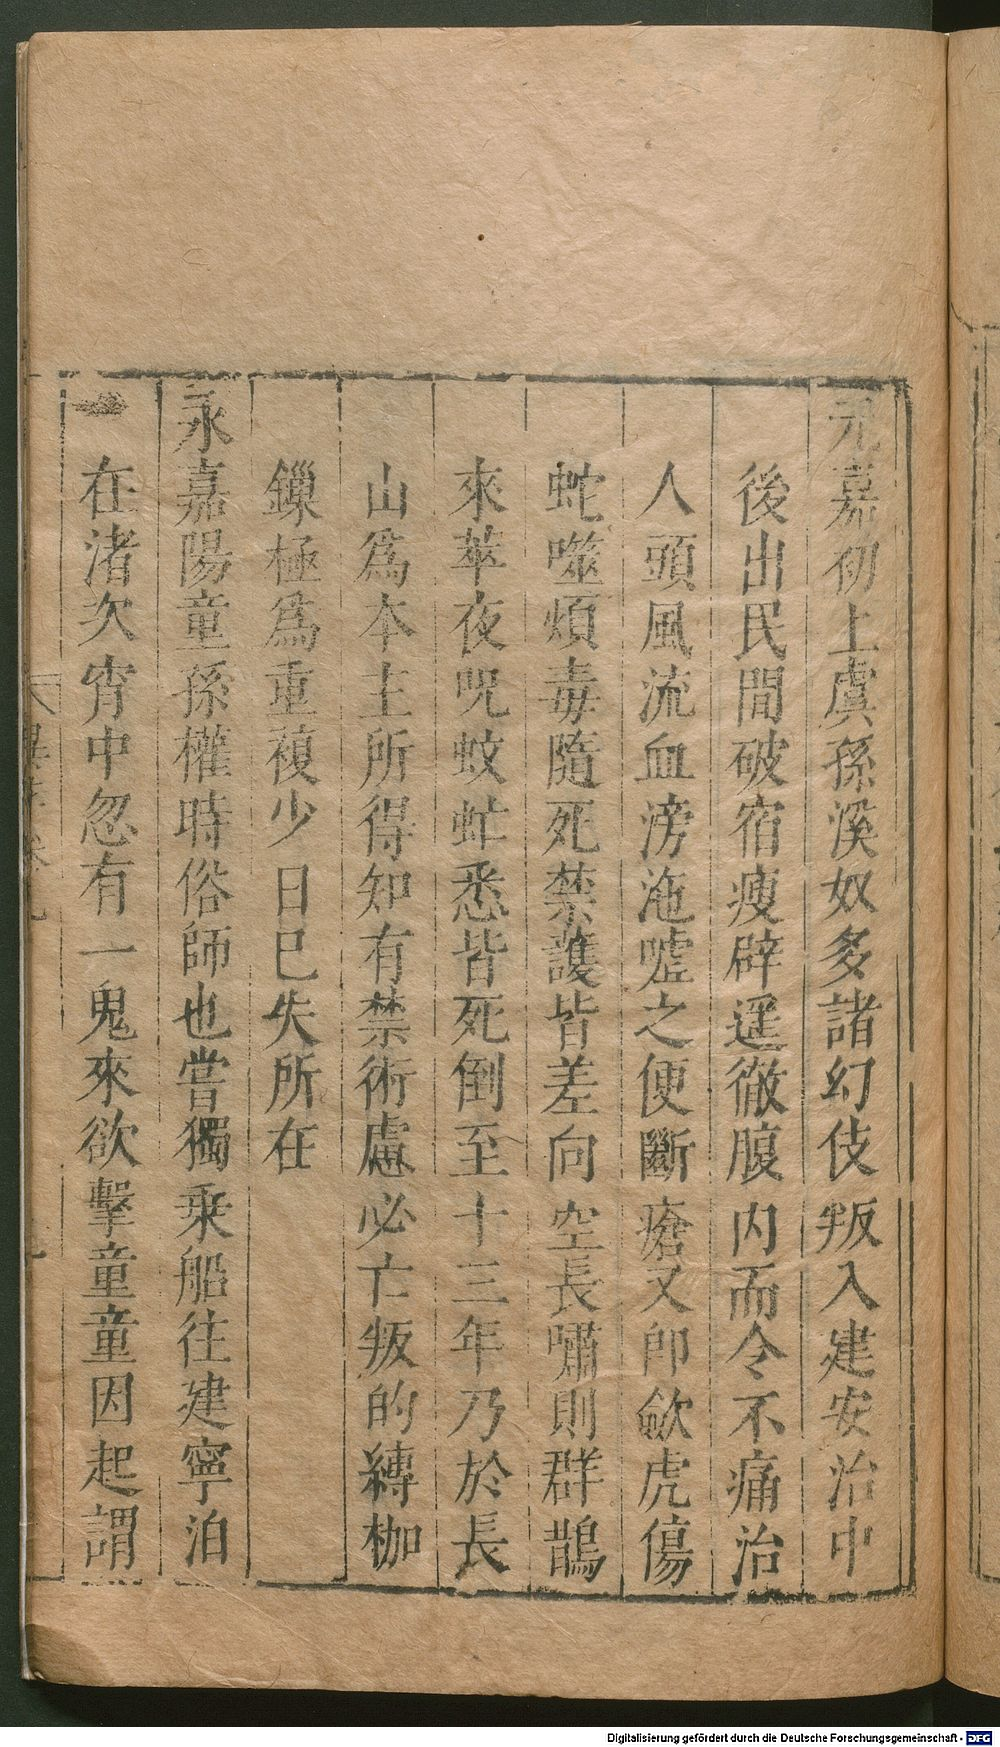 元嘉初上虞孫溪奴多諸幻伎叛入建安治中
後出民間破宿瘦辟遥徹腹内而令不痛治
人頭風流血滂沲嘘之便斷瘡又即歛虎傷
蛇噬煩毒隨死禁護皆差向空長嘯則群鵲
來萃夜呪蚊虻悉皆死倒至十三年乃於長
山爲本主所得知有禁術慮必亡叛的縛枷
鏁極爲重複少日已失所在
永嘉陽童孫權時俗師也嘗獨乗船往建寧泊
在渚次宵中忽有一鬼來欲擊童童因起謂
Digitalisierung gefördert durch die Deutsche Forschungsgemeinschaft - DFG